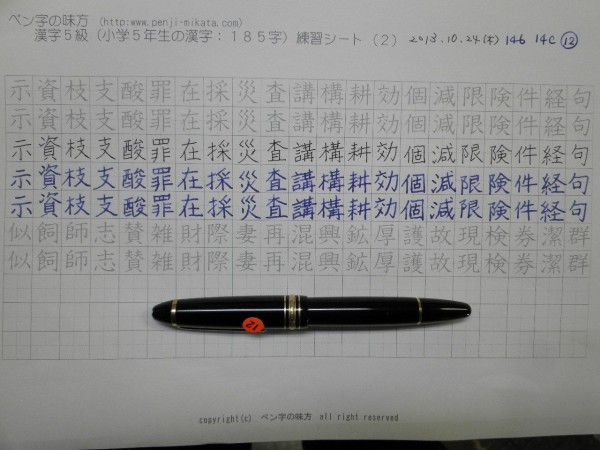 ペン字の味方 (http:www.penji-mikata.com/)
漢字５級（小学５年生の漢字：１８５字）練習シート（２） 2013.10.24(木) 146 14C ⑫
示資枝支酸罪在採災査講構耕効個減限険件経句
示資枝支酸罪在採災査講構耕効個減限険件経句
示資枝支酸罪在採災査講構耕効個減限険件経句
示資枝支酸罪在採災査講構耕効個減限険件経句
示資枝支酸罪在採災査講構耕効個減限険件経句
似飼師志賛雑財際妻再混興鉱厚護故現検券潔群
似飼師志賛雑財際妻再混興鉱厚護故現検券潔群
12
copyright(c) ペン字の味方 all right reserved